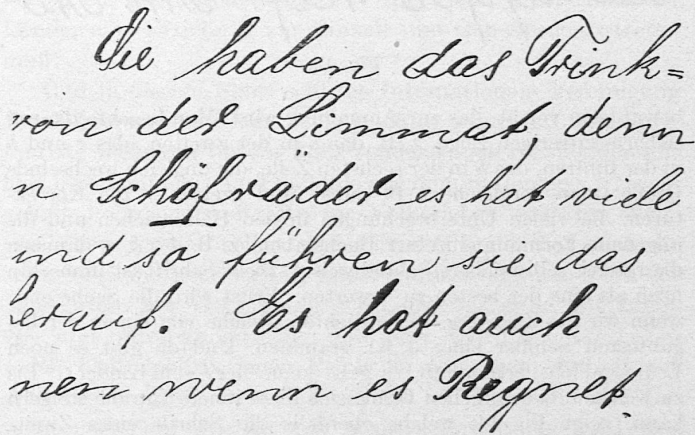 Sie haben das Trink=
von der Limmat, denn
n Schöfräder es hat viele
und so führen sie das
herauf. Es hat auch
nen wenn es Regnet.